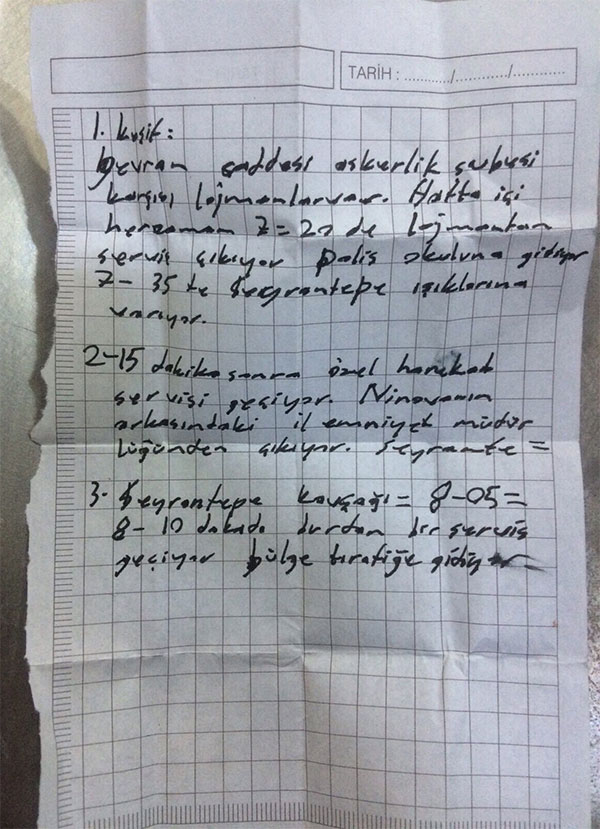 TARİH : ............/............/............
1. keşif:
Gevran caddesi askerlik şubesi
karşısı lojmanlarvar. Hafta içi
herzaman 7=20 de lojmantan
servis çıkıyor polis okuluna gidiyor
7-35 te Seyrantepe ışıklarına
varıyor.
2-15 dakika sonra özel harekat
servisi geçiyor. Ninovanın
arkasındaki il emniyet müdür
lüğünden çıkıyor. Seyrante =
3- Seyrantepe kavşağı = 8-05=
8-10 dakada burdan bir servis
geçiyor bölge tırafiğe gidiyor